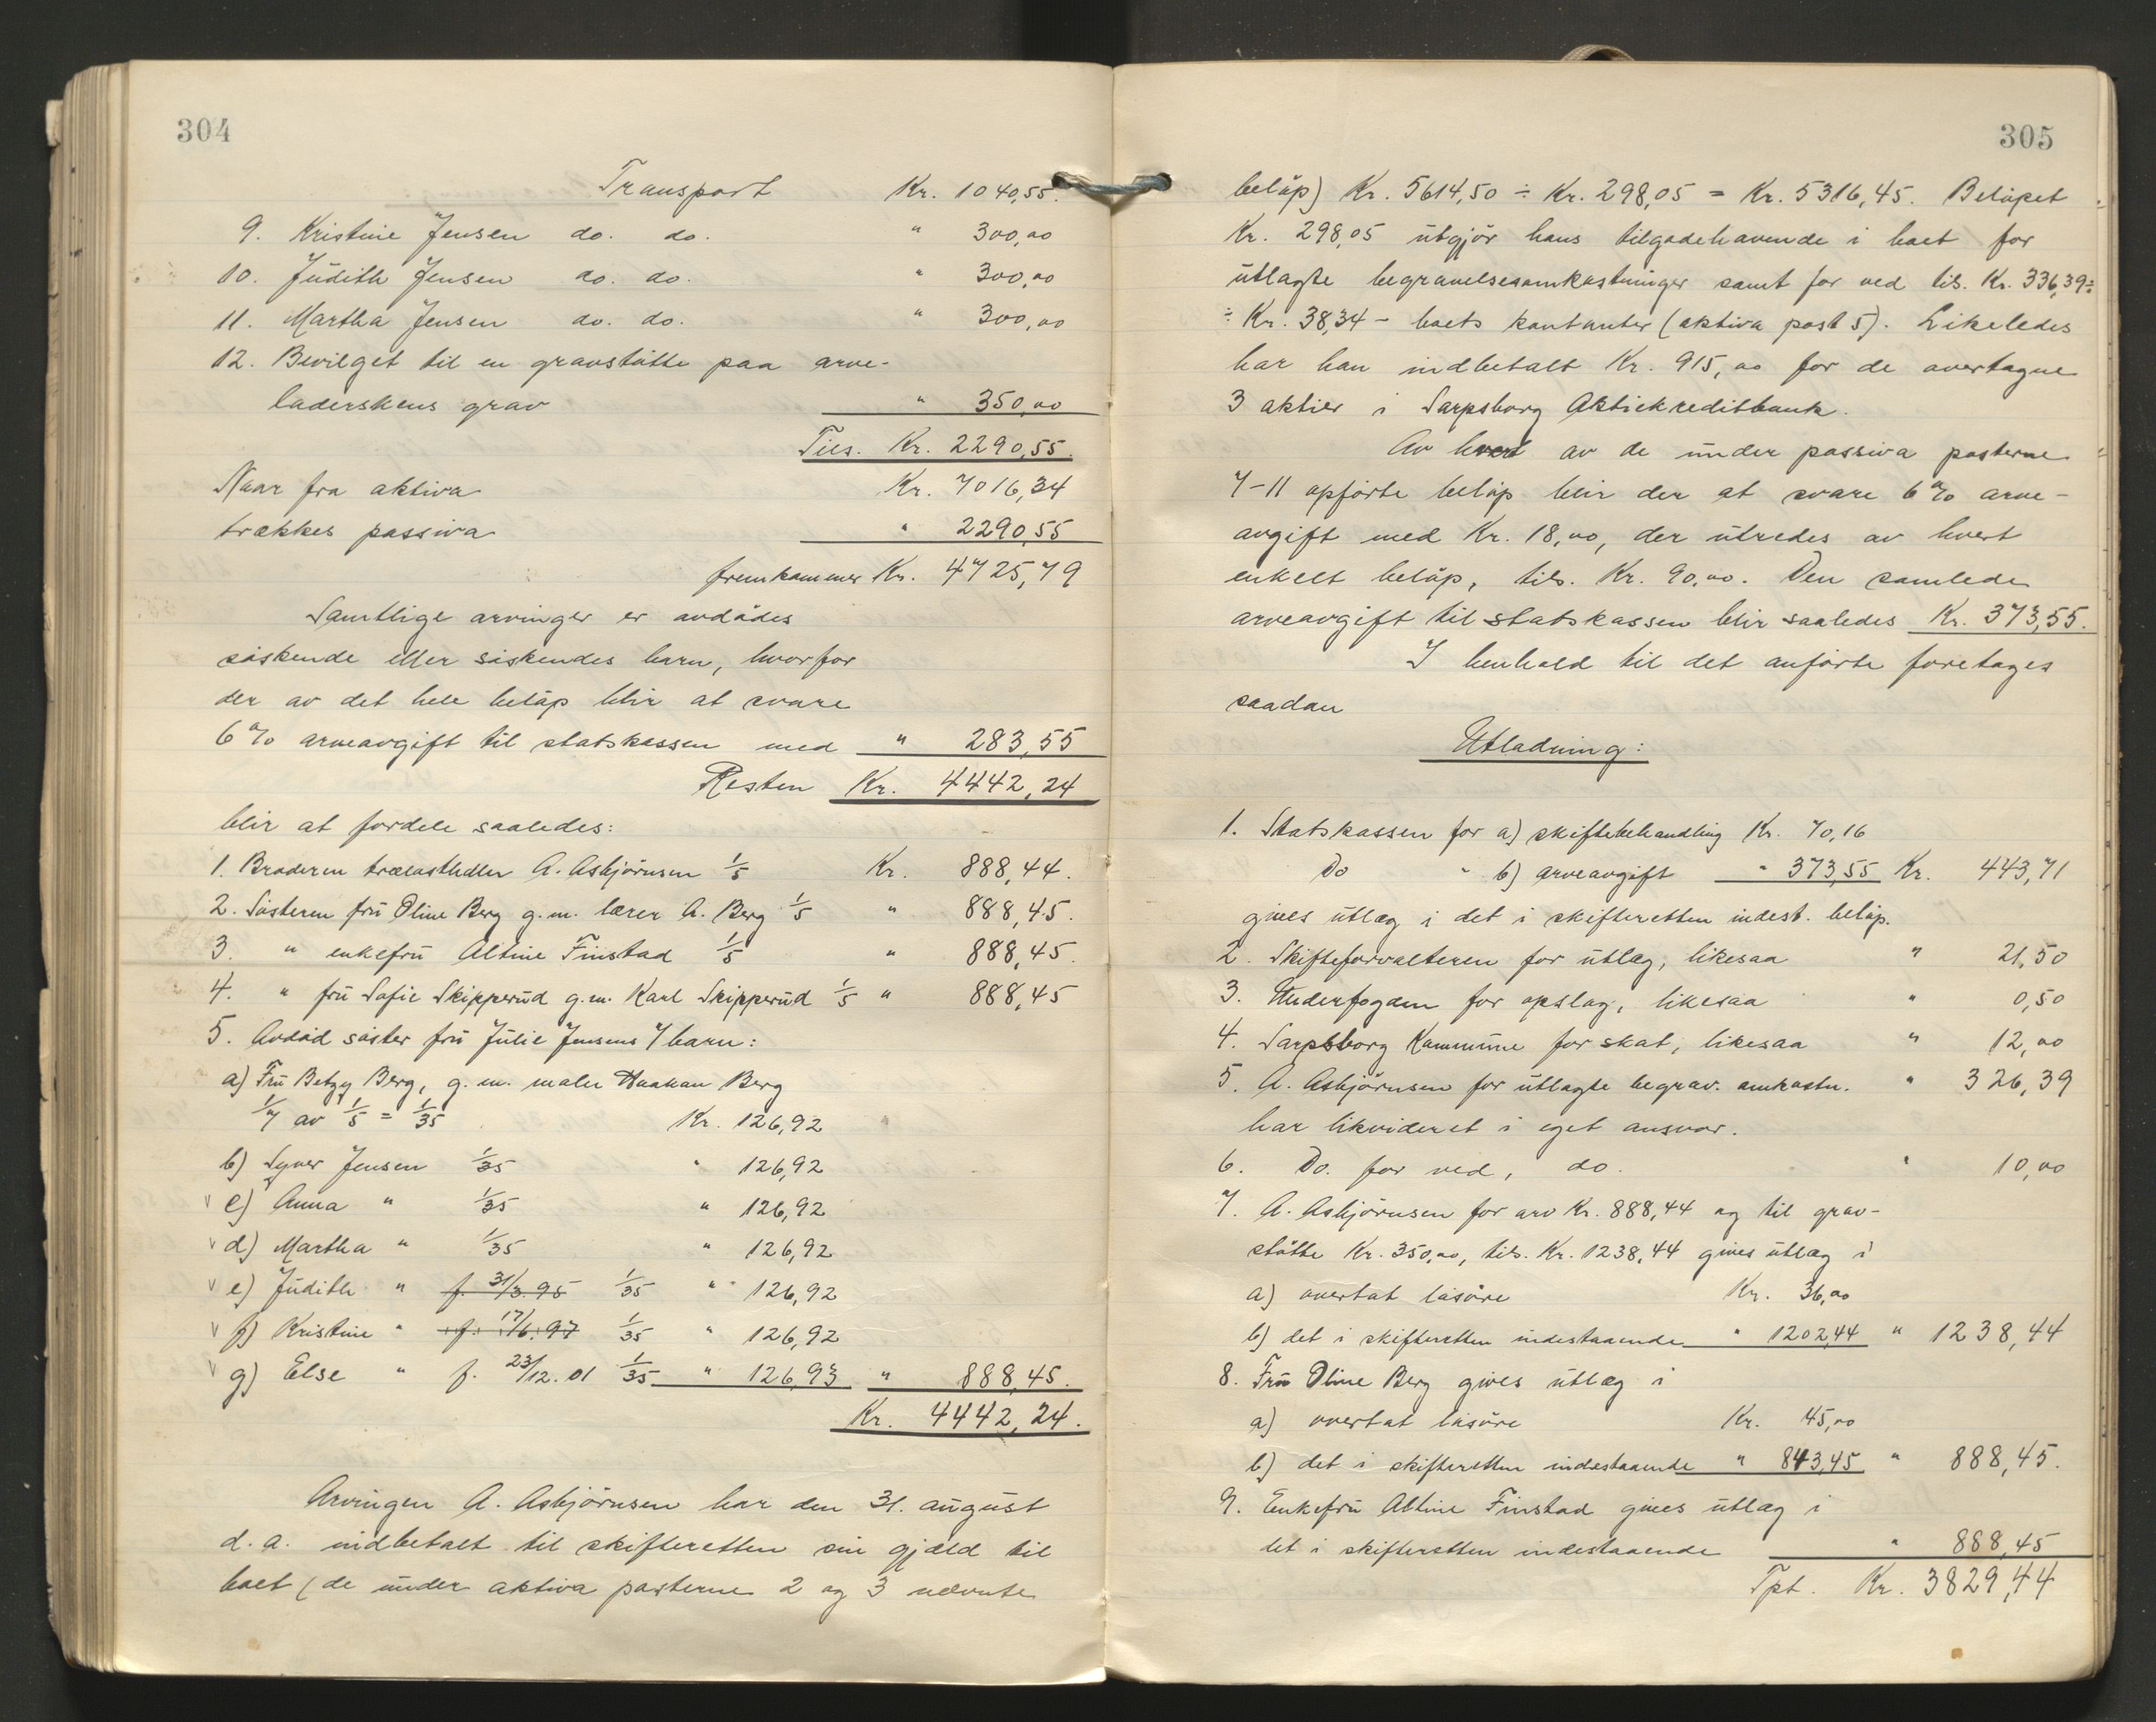 304
Transport Kr. 1040,55.
9. Kristine Jensen do. do. " 300,00
10. Judith Jensen do. do. " 300,00
11. Martha Jensen do. do. " 300,00
12. Bevilget til en gravstøtte paa arve-
laderskens grav " 350,00
Tils. Kr. 2290,55.
Naar fra aktiva Kr. 7016,34
trækkes passiva " 2290,55
fremkommer Kr. 4725,79
Samtlige arvinger er avdødes
søskende eller søskendes barn, hvorfor
der av det hele beløp blir at svare
6 % arveavgift til statskassen med " 283,55
Resten Kr. 4442,24
blir at fordele saaledes:
1. Broderen trælasthdler A. Asbjørnsen 1/5 Kr. 888,44.
2. Søsteren frü Oline Berg g.m. lærer A. Berg 1/5 " 888,45.
3. " enkefrü Altine Finstad 1/5 " 888,45.
4. " frü Sofie Skipperüd g.m. Karl Skipperüd 1/5 " 888,45
5. Avdød søster frü Jülie Jensens 7 barn:
a) Frü Betzy Berg, g. m. maler Haakon Berg
1/7 av 1/5 = 1/35 Kr. 126,92
b) Syver Jensen 1/35 " 126,92
c) Anna " 1/35 " 126,92
d) Martha " 1/35 " 126,92
e) Jüdith " f. 31/3.95 1/35 " 126,92
f) Kristine " f. 17/6.97 1/35 " 126,92
g) Else " f. 23/12.01 1/35 " 126,93 " 888,45.
Kr. 4442,24.
Arvingen A. Asbjørnsen har den 31. aügüst
d.a. indbetalt til skifteretten sin gjæld til
boet (de ünder aktiva posterne 2 og 3 nævnte
305
beløp) Kr. 5614,50 ÷ Kr. 298,05 = Kr. 5316,45. Beløpet
Kr. 298,05 ütgjør hans tilgodehavende i boet for
ütlagte begravelsesomkostninger samt for ved tils. Kr. 336,39 ÷
÷ Kr. 38,34 - boets kontanter (aktiva post 5). Likeledes
har han indbetalt Kr. 915,00 for de overtagne
3 aktier i Sarpsborg Aktiekreditbank.
Av hvert av de ünder passiva posterne
7-11 opførte beløp blir der at svare 6 % arve-
avgift med Kr. 18,00, der ütredes av hvert
enkelt beløp, tils. Kr. 90,00. Den samlede
arveavgift til statskassen blir saaledes Kr. 373,55.
I henhold til det anførte foretages
saadan
Utlodning:
1. Statskassen for a) skiftebehandling Kr. 70,16
Do " b) arveavgift " 373,55 Kr. 443,71
gives ütlæg i det i skifteretten indest. beløp.
2. Skifteforvalteren for ütlæg, likesaa " 21,50
3. Underfogden for opslag, likesaa " 0,50
4. Sarpsborg Kommüne for skat, likesaa " 12,00
5. A. Asbjørnsen for ütlagte begrav. omkostn. " 326,39
har likvideret i eget ansvar.
6. Do. for ved, do. " 10,00
7. A. Asbjørnsen for arv Kr. 888,44 og til grav-
støtte Kr. 350,00, tils. Kr. 1238,44 gives ütlæg i
a) overtat løsøre Kr. 36,00
b) det i skifteretten indestaaende " 1202,44 " 1238,44
8. Frü Oline Berg gives ütlæg i
a) overtat løsøre Kr. 45,00
b) det i skifteretten indestaaende " 843,45 " 888,45.
9. Enkefrü Altine Finstad gives ütlæg i
det i skifteretten indestaaende " 888,45
Tpt. Kr. 3829,44